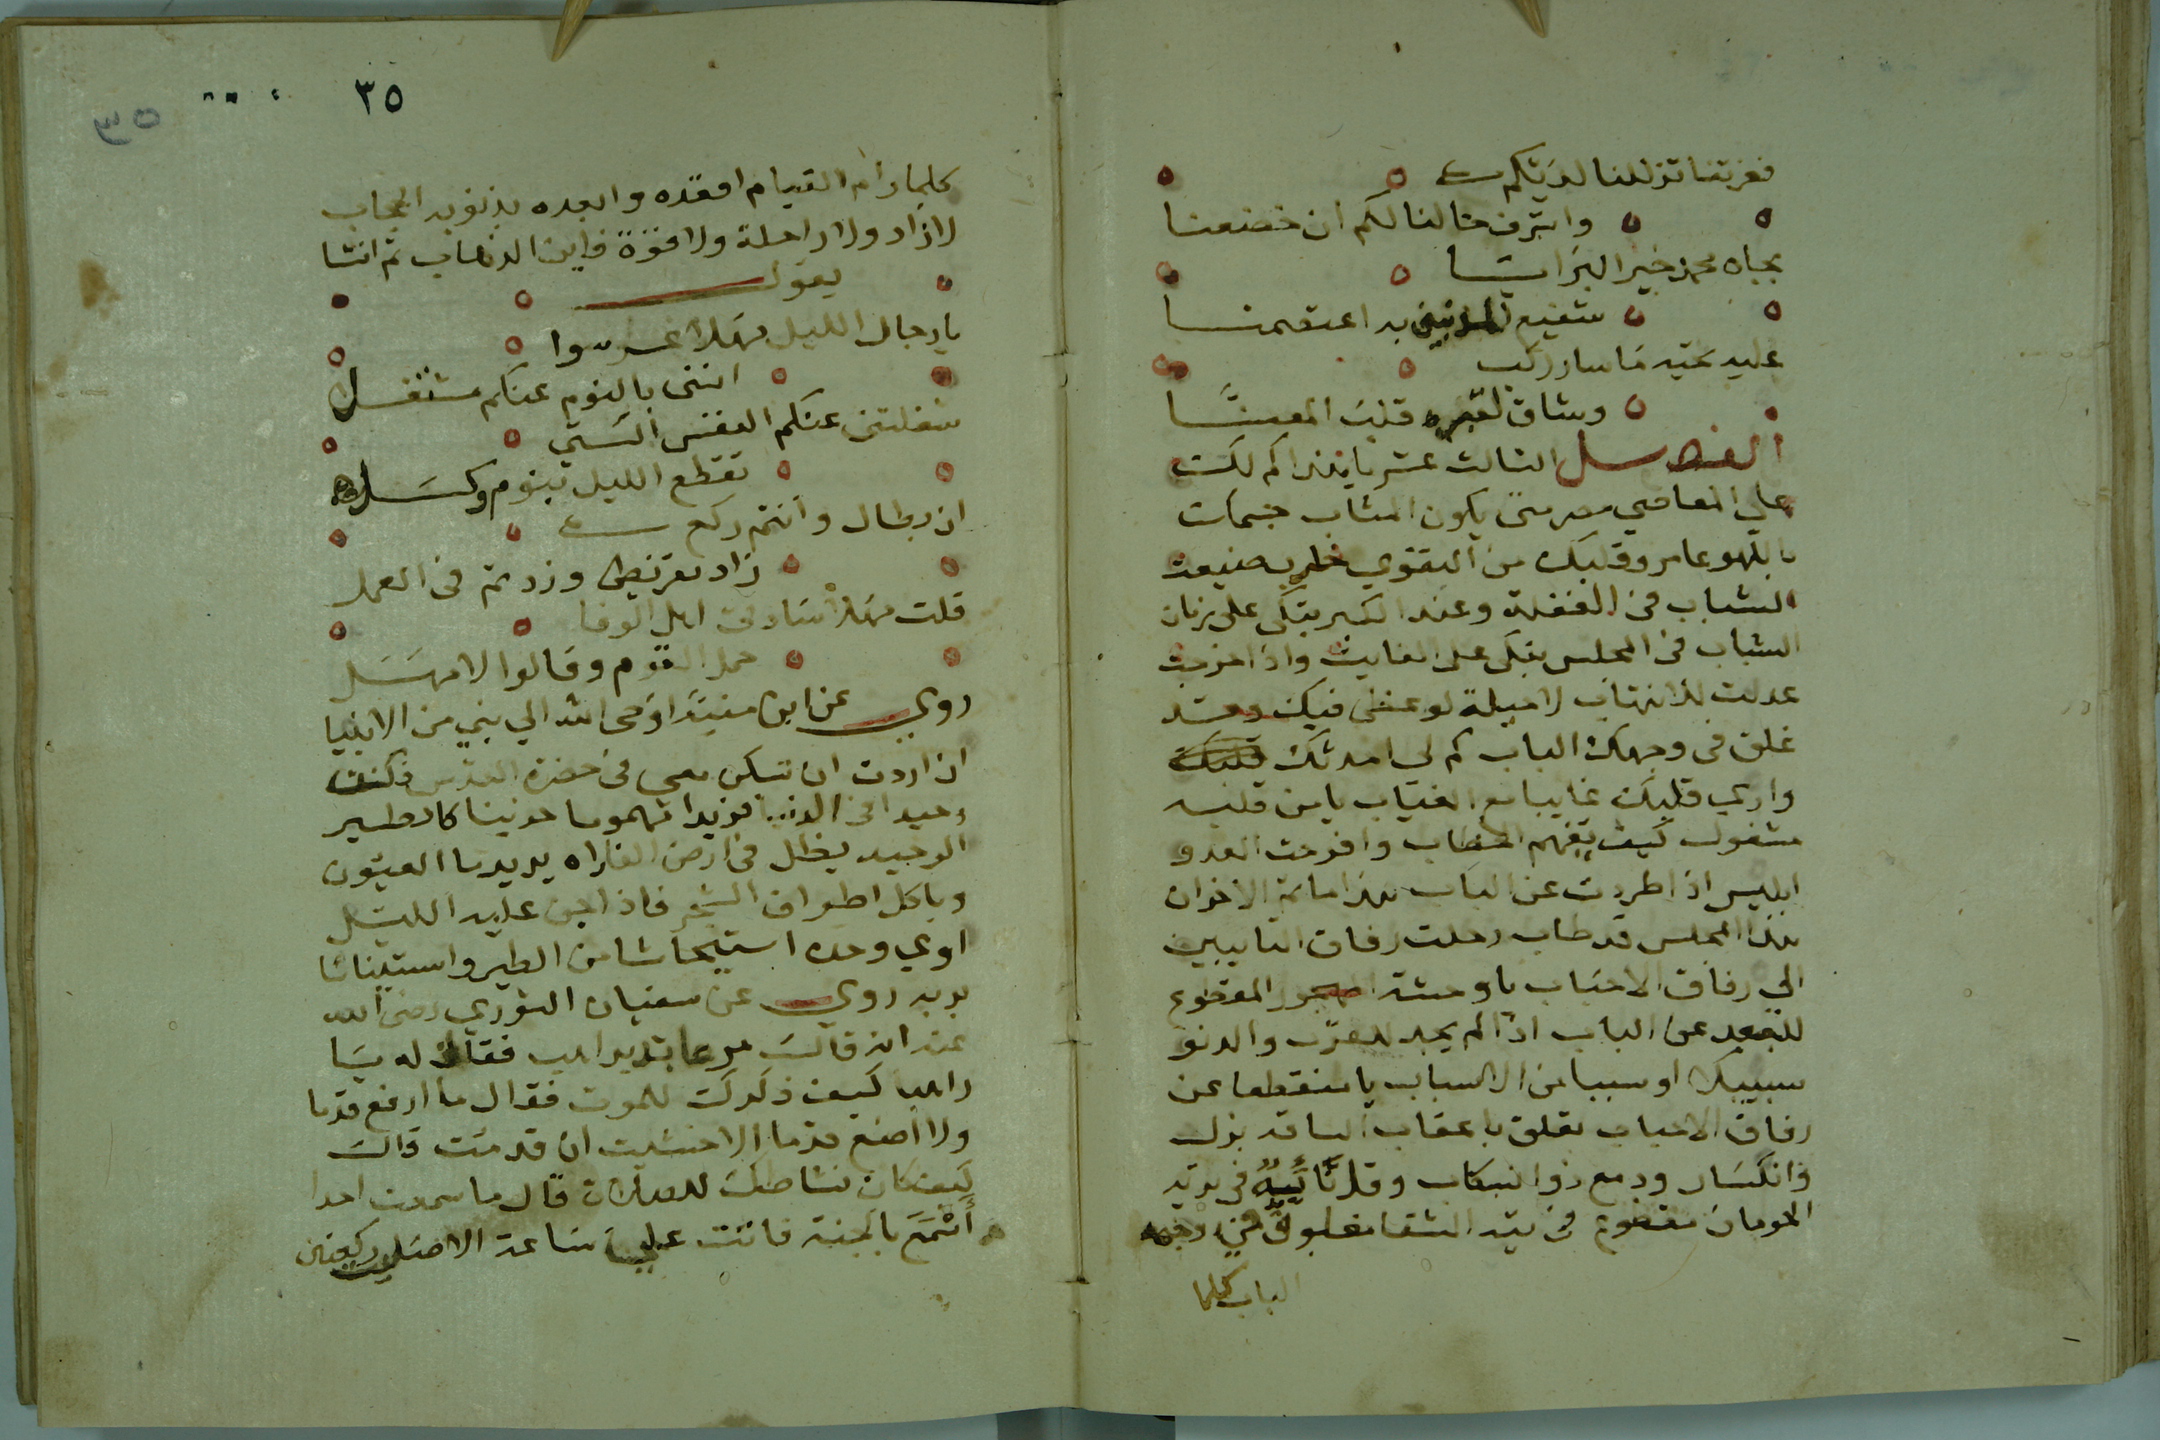 فعزتنا تذللنا لديكم
واشرف حالنا لكم ان خضعنا
بجاه محمد خير البرايا
شفيع المذنبين به اعتصمنا
عليه تحيه ما سار ركب
وشاق لقبره قلب المعنا
الفصل الثالث عشر يا هذا كم لك
علي المعاصي مصر متى يكون المتاب جسمك
باللهو عامر وقلبك من التقوي خراب ضيعت
الشباب في الغفلة وعند الكبر تبكى على زمان
الشباب في المجلس تبكى على الفايت واذا خرجت
عدت للانتهاب لا حيلة لوعظى فيك وقد
غلق في وجهك الباب كم لي احدثك قلبك
واري قلبك غايبا مع الغياب يا من قلبه
مشغول كيف يفهم الخطاب وافرحت العدو
ابليس اذا طردت عن الباب هذا ماتم الاخوان
هذا المجلس قد طاب رحلت رفاق التايبين
الي رفاق الاحباب يا وحشة المهجور المقطوع
للبعد عن الباب اذا لم يجد للقرب والدنو
سبيبلا او سببا من الاسباب يا منقطعا عن
رفاق الاحباب تعلق باعقاب الساقه بذل
وانكسار ودمع ذو انسكاب وقل تائيه في برية
الحرمان مقطوع في تيه الشقا مغلوق في وجهه
الباب كلما
٣٥
٣٥
كلما رام القيام اقعده وابعده بذنوبه الحجاب
لا زاد ولا راحلة ولا قوة فاين الذهاب ثم انشا
يقول
يا رجال الليل مهلا عرسوا
اننى بالنوم عنكم مشتغل
شغلتنى عنكم النفس التي
تقطع الليل بنوم وكسل
ان بطال وانتم ركع
زاد تفريطى وزدتم في العمل
قلت مهلا سادتى اهل الوفا
حمل القوم وقالوا لا مهل
روي عن ابن منبه اوحى الله الي نبي من الانبيا
ان اردت ان تسكن معي في حضرة القدس فكن
وحيدا في الدنيا فريدا مهموما حزينا كالطير
الوحيد يظل في ارض الفلاه يريد ما العيون
وياكل اطراف الشجر فاذا جن عليه الليل
اوي وحده استيحاشا من الطير واستيناسا
بربه روي عن سفيان الثوري رضى الله
عنه انه قال مر عابد براهب فقال له يا
راهب كيف ذكرك للموت فقال ما ارفع قدما
ولا اضع قدما الا خشيت ان قد مت قال
كيف كان نشاطك للصلاة قال ما سمعت احدا
أَسْمَعَ بالجنة فاتت عليه ساعة الا صلى ركعتين